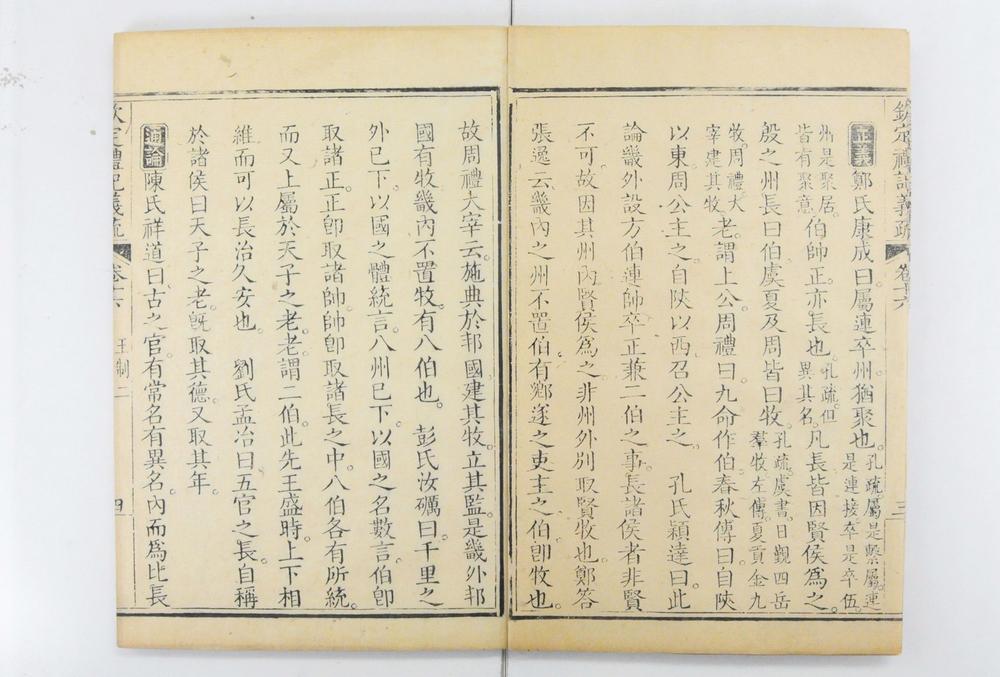 欽定禮記義疏 卷十六 三
正義 鄭氏康成曰屬連卒州猶聚也。孔疏屬是繫屬。連是連接。卒是卒伍。
州是聚居。皆有聚意。伯帥正。亦長也。孔疏但異其名。凡長皆因賢侯為之。
殷之州長曰伯虞夏及周皆曰牧。孔疏。虞書。日覲四岳羣牧左傳。夏貢金九
牧。周禮大宰建其牧。老。謂上公。周禮曰。九命作伯春秋傳曰自陝
以東。周公主之。自陝以西。召公主之。 孔氏穎達曰。此
論畿外設方伯連帥卒正兼二伯之事。長諸侯者非賢
不可。故因其州內賢侯為之。非州外別取賢牧也。鄭答
張逸云畿內之州不置伯。有鄉遂之吏主之。伯卽牧也。
故周禮大宰云。施典於邦國建其牧。立其監。是畿外邦
國有牧畿內不置牧。有八伯也。 彭氏汝礪曰。千里之
外已下。以國之體統言。八州已下。以國之名數言。伯卽
取諸正。正卽取諸帥。帥卽取諸長之中。八伯各有所統。
而又上屬於天子之老。老。謂二伯。此先王盛時。上下相
維而可以長治久安也。 劉氏孟冶曰五官之長。自稱
於諸侯曰天子之老。旣取其德。又取其年。
通論 陳氏祥道曰古之官。有常名有異名。內而為比長
欽定禮記義疏 卷十六 王制二 四